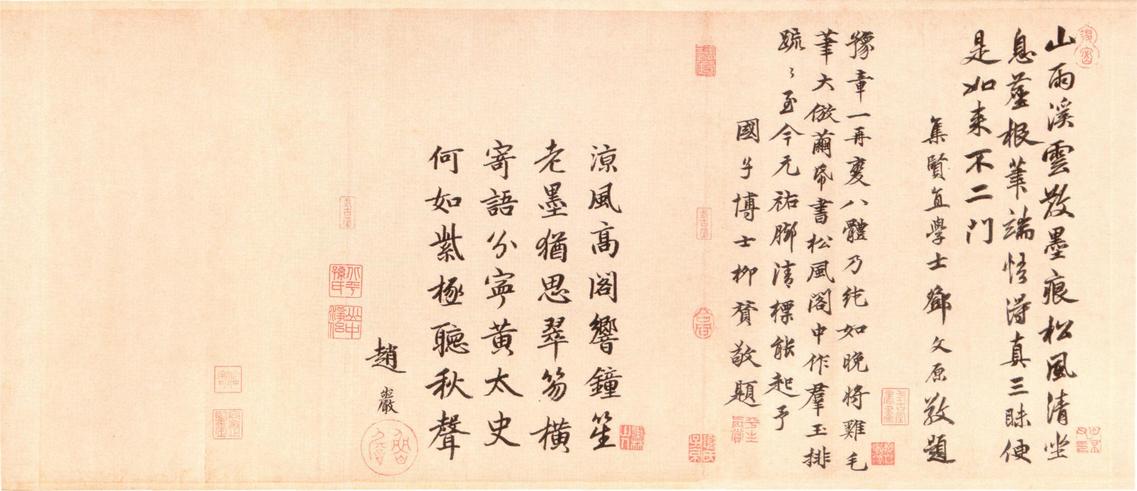 山雨溪雲散墨痕松風清坐
息塵根筆端悟得真三昧便
是如來不二門
集賢直學士鄧文原敬題
豫章一再變八體乃純如晚將雞毛
筆大倣繭帋書松風閣中作羣玉排
疏〻至今元祐腳清標能起予
國子博士柳贇敬題
涼風高閣響鐘笙
老墨猶思翠笏橫
寄語分寧黃太史
何如紫極聽秋聲
趙巖